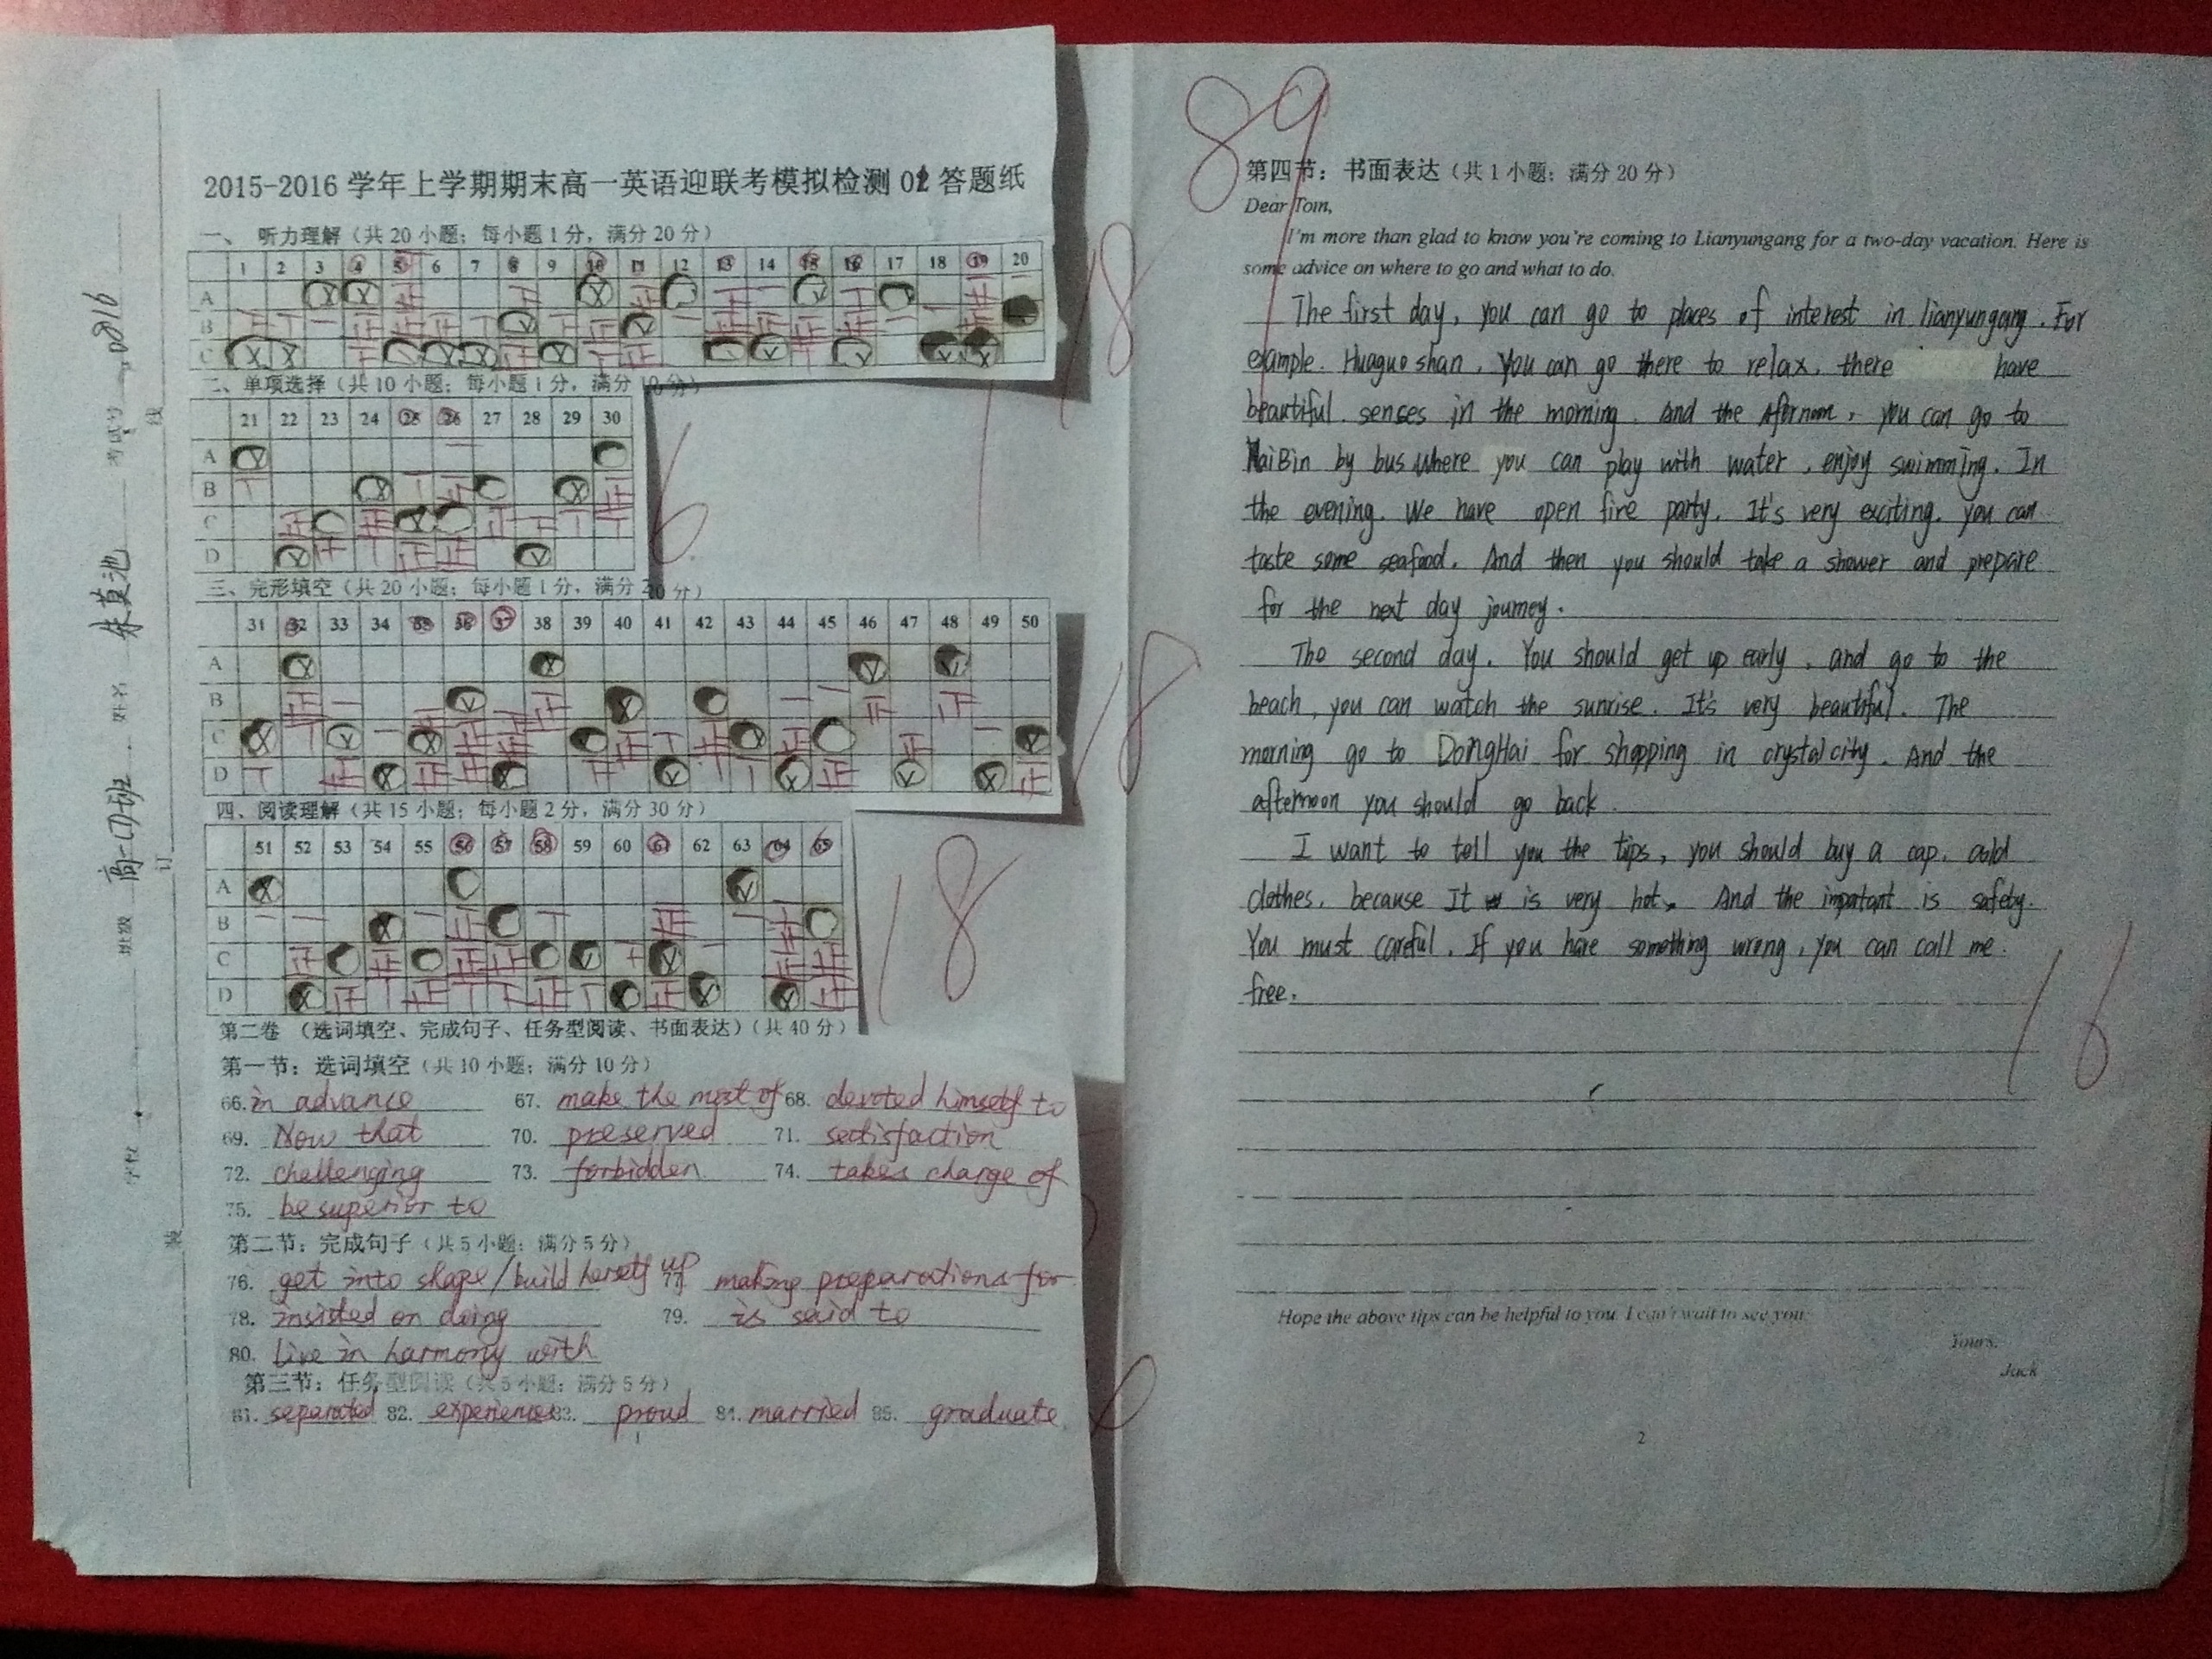 2015-2016 学年上学期期末高一英语迎联考模拟检测 02 答题纸
一、 听力理解（共 20 小题；每小题 1 分，满分 20 分）
1 2 3 4 5 6 7 8 9 10 11 12 13 14 15 16 17 18 19 20
A
B
C
18
二、单项选择（共 10 小题；每小题 1 分，满分 10 分）
21 22 23 24 25 26 27 28 29 30
A
B
C
D
6
三、完形填空（共 20 小题；每小题 1 分，满分 20 分）
31 32 33 34 35 36 37 38 39 40 41 42 43 44 45 46 47 48 49 50
A
B
C
D
18
四、阅读理解（共 15 小题；每小题 2 分，满分 30 分）
51 52 53 54 55 56 57 58 59 60 61 62 63 64 65
A
B
C
D
18
第二卷 （选词填空、完成句子、任务型阅读、书面表达）（共 40 分）
第一节：选词填空（共 10 小题；满分 10 分）
66. in advance 67. make the most of 68. devoted himself to
69. Now that 70. preserved 71. satisfaction
72. challenging 73. forbidden 74. takes charge of
75. be superior to
第二节：完成句子（共 5 小题；满分 5 分）
76. get into shape/build herself up 77. making preparations for
78. insisted on doing 79. is said to
80. live in harmony with
第三节：任务型阅读（共 5 小题；满分 5 分）
81. separated 82. experiences 83. proud 84. married 85. graduate
1
学校 班级 高一(7)班 姓名 朱 池 考试号 0816
装 订 线
89
第四节：书面表达（共 1 小题；满分 20 分）
Dear Tom,
I'm more than glad to know you're coming to Lianyungang for a two-day vacation. Here is
some advice on where to go and what to do.
The first day, you can go to places of interest in lianyungang. For
example. Huaguo shan. You can go there to relax. there have
beautiful senses in the morning. And the afernoon, you can go to
HaiBin by bus where you can play with water, enjoy swimming. In
the evening. We have open fire party. It's very exciting. you can
taste some seafood. And then you should take a shower and prepare
for the next day journey.
The second day. You should get up early, and go to the
beach, you can watch the sunrise. It's very beautiful. The
morning go to DongHai for shopping in crystal city. And the
afternoon you should go back.
I want to tell you the tips, you should buy a cap. cold
clothes. because It is very hot. And the impotant is safety.
You must careful. If you have something wrong, you can call me.
free.
16
Hope the above tips can be helpful to you. I can't wait to see you.
Yours,
Jack
2